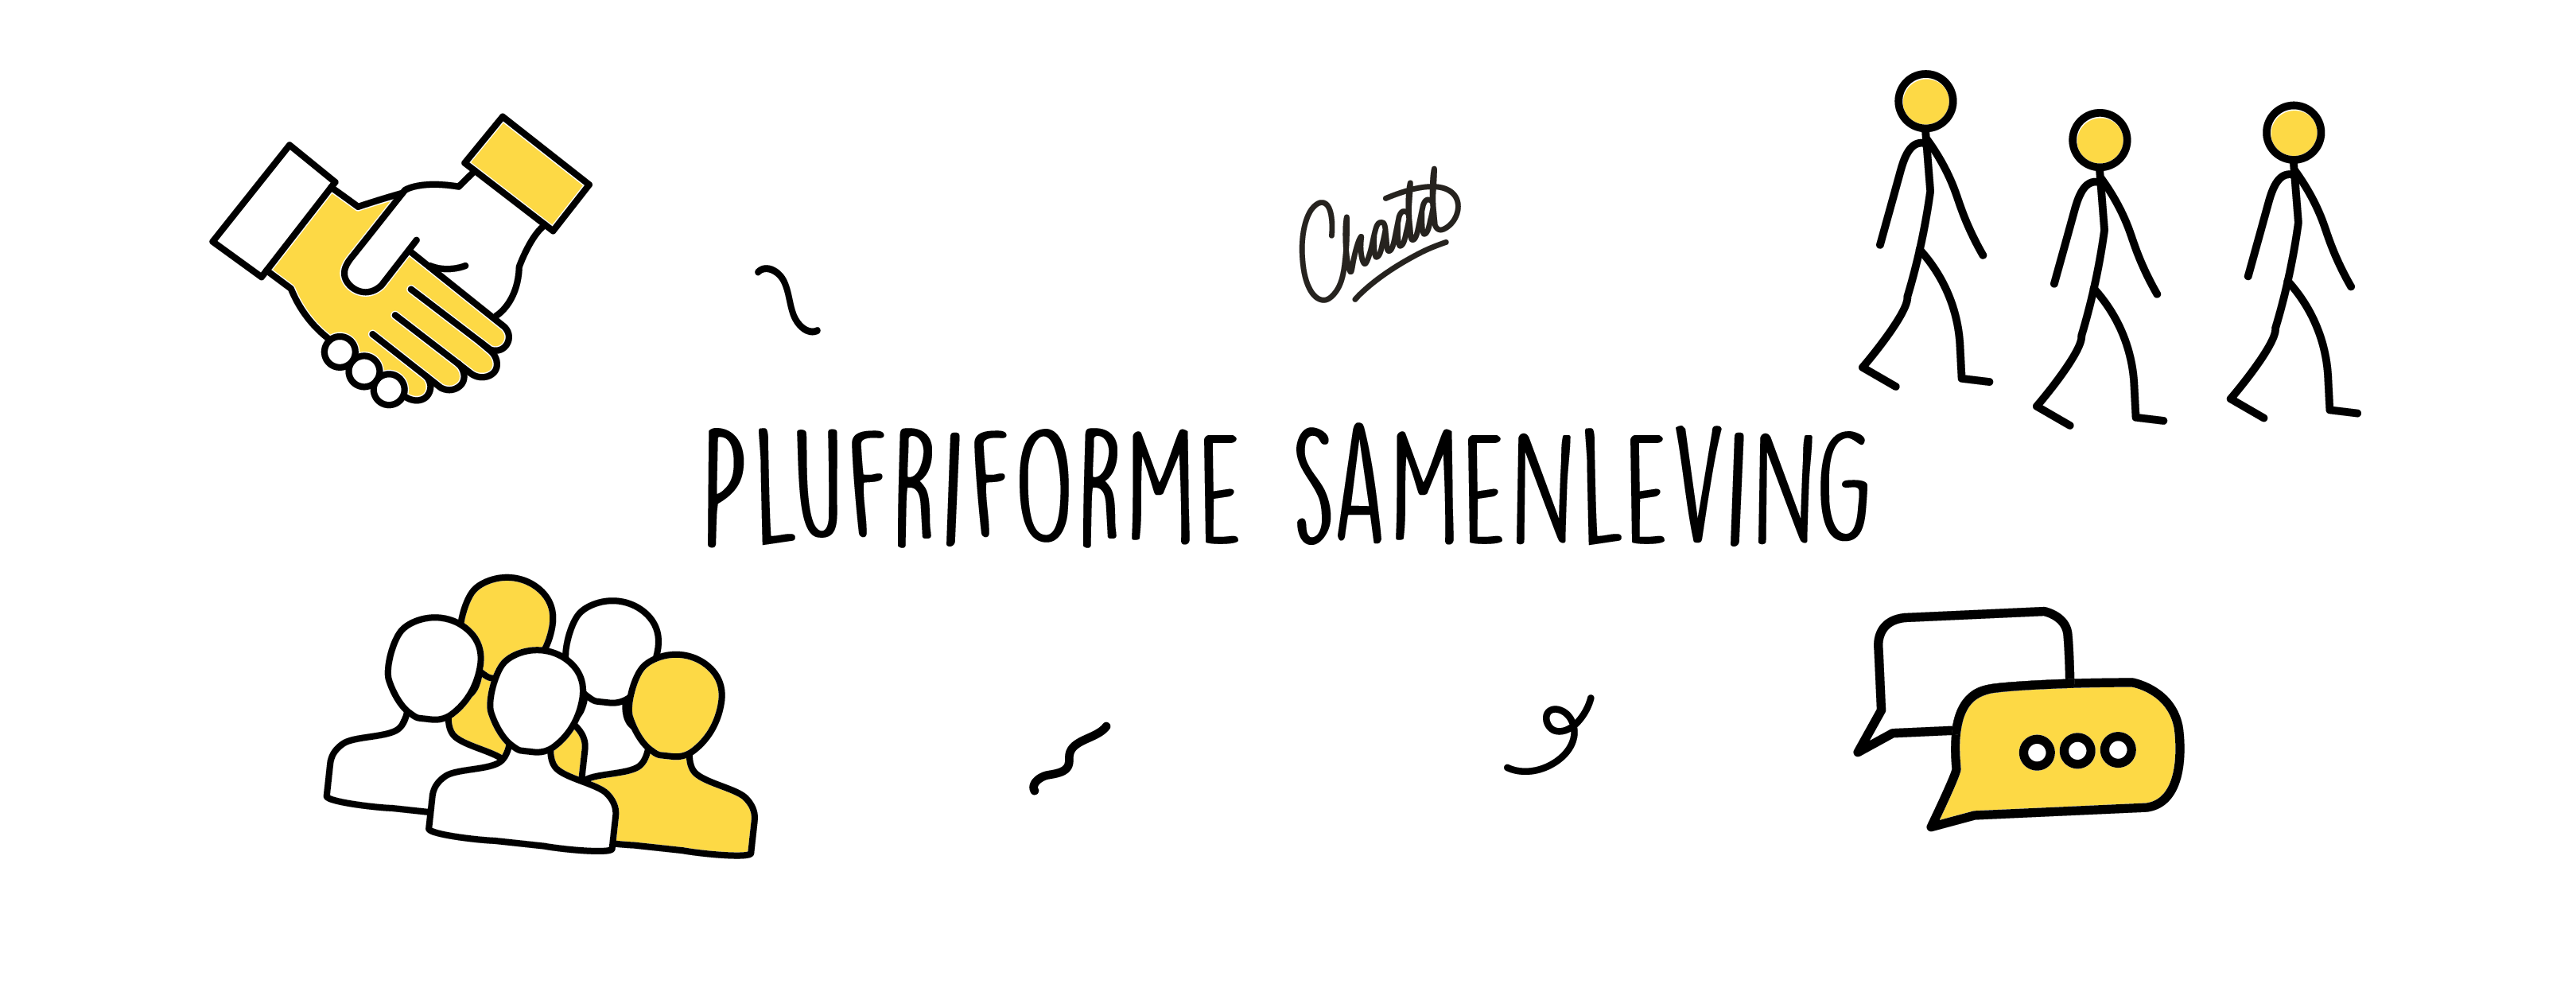 Chadd
PLUFRIFORME SAMENLEVING